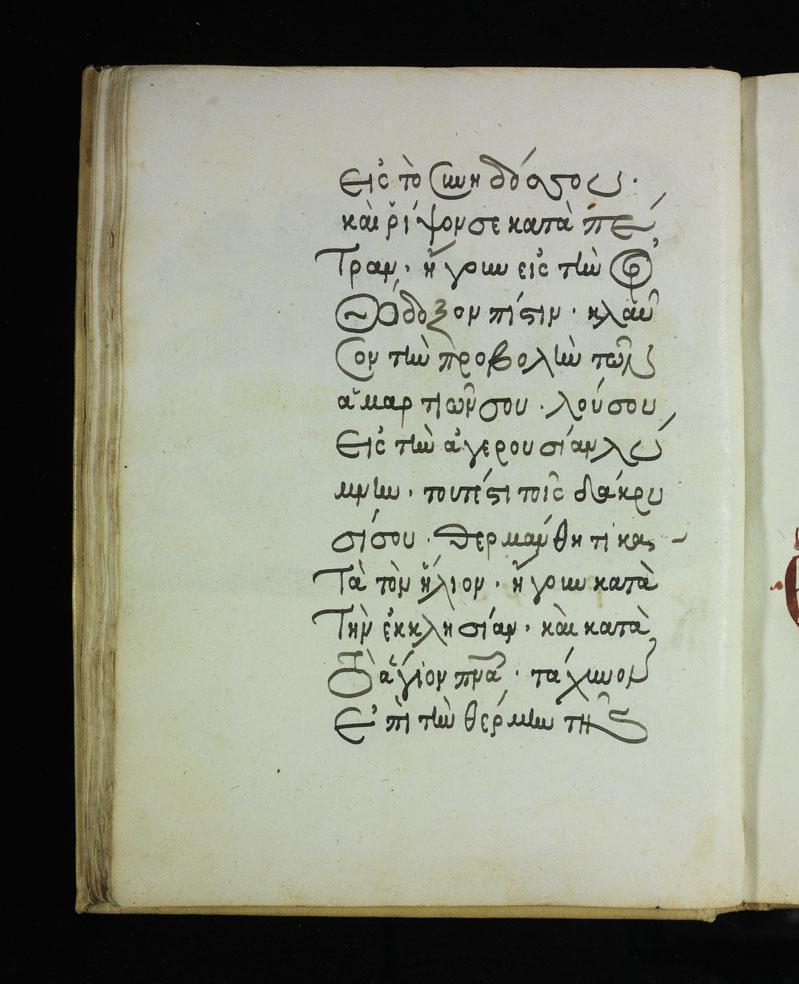 εἰς τὸ συνηδός σου·
καὶ ῥίψον σε κατὰ πέ
τραν· ἤγουν εἰς τὴν ὀρ
θόδοξον πίστιν· κλαῦ
σον τὴν προβολὴν τῶν
ἁμαρτιῶν σου· λούσου
εἰς τὴν ἀγερουσίαν λύ
μνην· τουτέστι τοῖς δάκρυ
σί σου· θερμάνθητι κα
τὰ τὸν ἥλιον· ἤγουν κατὰ
τὴν ἐκκλησίαν· καὶ κατὰ
τὸ ἅγιον πνα· τάχυνον
ἐπὶ τὴν θέρμην τῆς